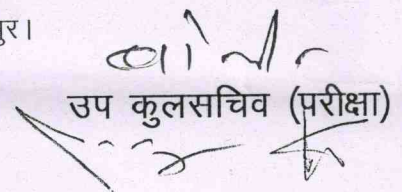 पुर।
उप कुलसचिव (परीक्षा)